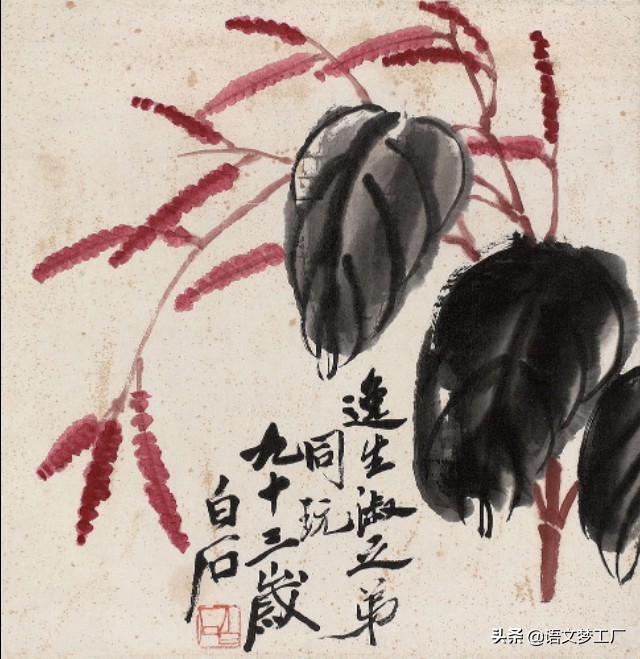 逸生淑之弟
同玩
九十三歲
白石
头条 @语文梦工厂